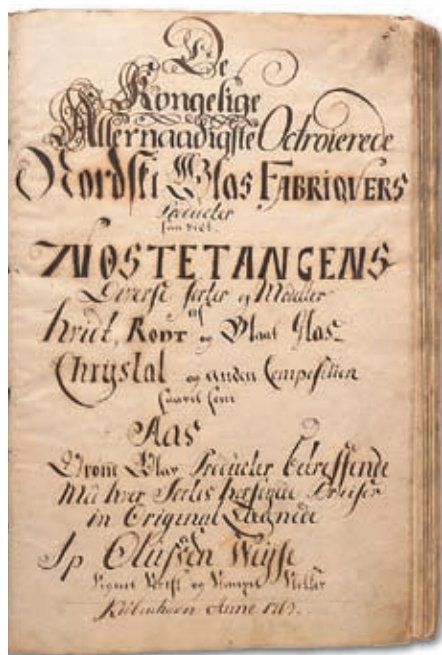 De
Kongelige
Allernaadigste Octroierede
Nordske Glas FABRIQVERS
Producter
saavelt
NÖSTETANGENS
Diverse Sorter og Modeller
af
hvidt, Rövt og Blaat Glas
Chrystal og anden Composition
saavel som
Aas
Gröne Glas Producter betreffende
Med hver Sortes hosföiede Priiser
in Original Tegnede
Ip Olüfsen Weyse
og
Kiöbenhavn Anno